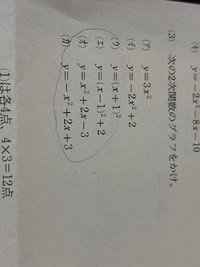 (4) y=−2x²−8x−10
(3) 次の2次関数のグラフをかけ。
(ア) y=3x²
(イ) y=−2x²+2
(ウ) y=(x+1)²
(エ) y=(x−1)²+2
(オ) y=x²+2x−3
(カ) y=−x²+2x+3
(1)は各4点、4×3=12点